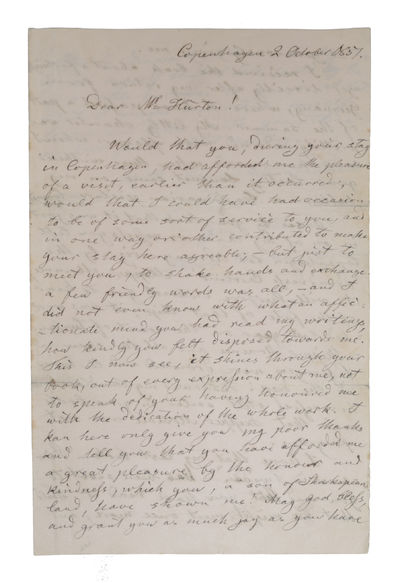 Copenhagen 2 October 1857.
Dear Mr Hurton!
Would that you, during your stay
in Copenhagen, had afforded me the pleasure
of a visit, earlier than it occurred,
would that I could have had occasion
to be of some sort of service to you, and
in one way or other contributed to make
your stay here agreeable, – but just to
meet you, to shake hands and exchange
a few friendly words was all, – and I
did not even know with what an affec
tionate mind you had read my writings,
how kindly you felt disposed towards me.
This I now see, it shines through your
book, out of every expression about me, not
to speak of your having honoured me
with the dedication of the whole work. I
kan here only give you my poor thanks
and tell you that you have afforded me
a great pleasure by the honour and
kindness, which you, a son of Shakespeares
land, have shown me. May god bless,
and grant you as much joy as you have